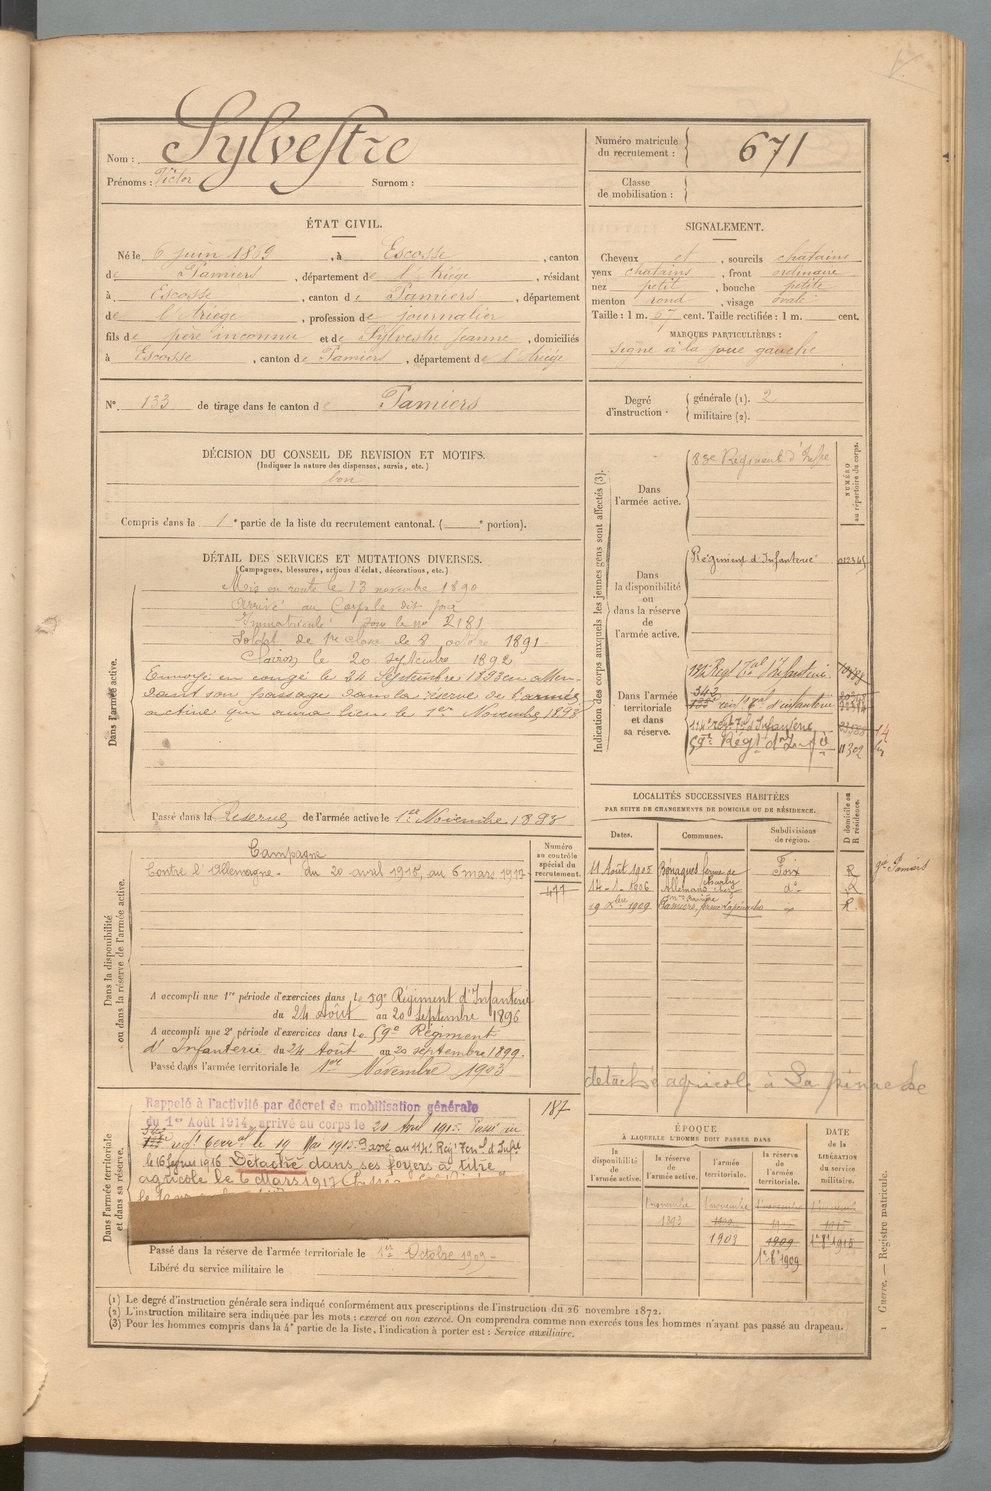 Nom : Sylvestre
Prénoms : Victor Surnom :
Numéro matricule du recrutement : 671
Classe de mobilisation :
ÉTAT CIVIL.
Né le 6 juin 1869, à Escosse, canton
de Pamiers, département de l'Ariège, résidant
à Escosse, canton de Pamiers, département
de l'Ariège, profession de journalier
fils de père inconnu et de Sylvestre Jeanne, domiciliés
à Escosse, canton de Pamiers, département de l'Ariège
N° 133 de tirage dans le canton de Pamiers
SIGNALEMENT.
Cheveux et, sourcils chatains
yeux chatains, front ordinaire
nez petit, bouche petite
menton rond, visage ovale
Taille : 1 m. 67 cent. Taille rectifiée : 1 m. cent.
MARQUES PARTICULIÈRES :
signe à la joue gauche
Degré d'instruction . générale (1). 2
militaire (2).
DÉCISION DU CONSEIL DE REVISION ET MOTIFS.
(Indiquer la nature des dispenses, sursis, etc.)
bon
Compris dans la 1e partie de la liste du recrutement cantonal. ( e portion).
DÉTAIL DES SERVICES ET MUTATIONS DIVERSES.
(Campagnes, blessures, actions d'éclat, décorations, etc.)
Dans l'armée active.
Mis en route le 13 novembre 1890
Arrivé au Corps le dit jour
Immatriculé sous le n° 2181
Soldat de 1re classe le 8 octobre 1891
Clairon le 20 septembre 1892
Envoyé en congé le 24 Septembre 1893 en atten-
dant son passage dans la réserve de l'armée
active qui aura lieu le 1er Novembre 1893
Passé dans la Réserve de l'armée active le 1er Novembre 1893
Indication des corps auxquels les jeunes gens sont affectés (3).
NUMÉRO au répertoire du corps.
Dans l'armée active.
83e Régiment d'Infie
Dans la disponibilité ou dans la réserve de l'armée active.
Régiment d'Infanterie
Dans l'armée territoriale et dans sa réserve.
132e Regt Tal d'Infanterie
343
114e Regt Tal d'Infanterie
59e Régt d'Inf
11302
LOCALITÉS SUCCESSIVES HABITÉES
PAR SUITE DE CHANGEMENTS DE DOMICILE OU DE RÉSIDENCE.
Dates. Communes. Subdivisions de région. D domicile ou R résidence.
11 Août 1905 Bénagues ferme de Foix R
14-1-1906 do R
19 Xbre 1909 Pamiers, ferme Lapinache R.
détaché agricole à La pinache
Dans la disponibilité ou dans la réserve de l'armée active.
Numéro au contrôle spécial du recrutement.
477
Campagne
Contre l'Allemagne - du 20 avril 1915, au 6 mars 1917
A accompli une 1re période d'exercices dans le 59e Régiment d'Infanterie
du 24 Août au 20 septembre 1896
A accompli une 2e période d'exercices dans le 59e Régiment
d'Infanterie du 24 Août au 20 septembre 1899.
Passé dans l'armée territoriale le 1er Novembre 1903
Dans l'armée territoriale et dans sa réserve.
187
Rappelé à l'activité par décret de mobilisation générale
du 1er Août 1914, arrivé au corps le 20 Avril 1915. Passé au
regt terral le 19 Mai 1915. Passé au 114e Regt Terral d'Infie
le 16 1916 Détaché dans ses foyers à titre
agricole le 6 Mars 1917
Passé dans la réserve de l'armée territoriale le 1er Octobre 1909
Libéré du service militaire le
ÉPOQUE
À LAQUELLE L'HOMME DOIT PASSER DANS
la disponibilité de l'armée active. la réserve de l'armée active. l'armée territoriale. la réserve de l'armée territoriale.
DATE de la LIBÉRATION du service militaire.
1 novembre 1 novembre 1 novembre 1 novembre
1893
1903 1909
1er 8bre 1909
Guerre. — Registre matricule.
(1) Le degré d'instruction générale sera indiqué conformément aux prescriptions de l'instruction du 26 novembre 1872.
(2) L'instruction militaire sera indiquée par les mots : exercé ou non exercé. On comprendra comme non exercés tous les hommes n'ayant pas passé au drapeau.
(3) Pour les hommes compris dans la 4e partie de la liste, l'indication à porter est : Service auxiliaire.